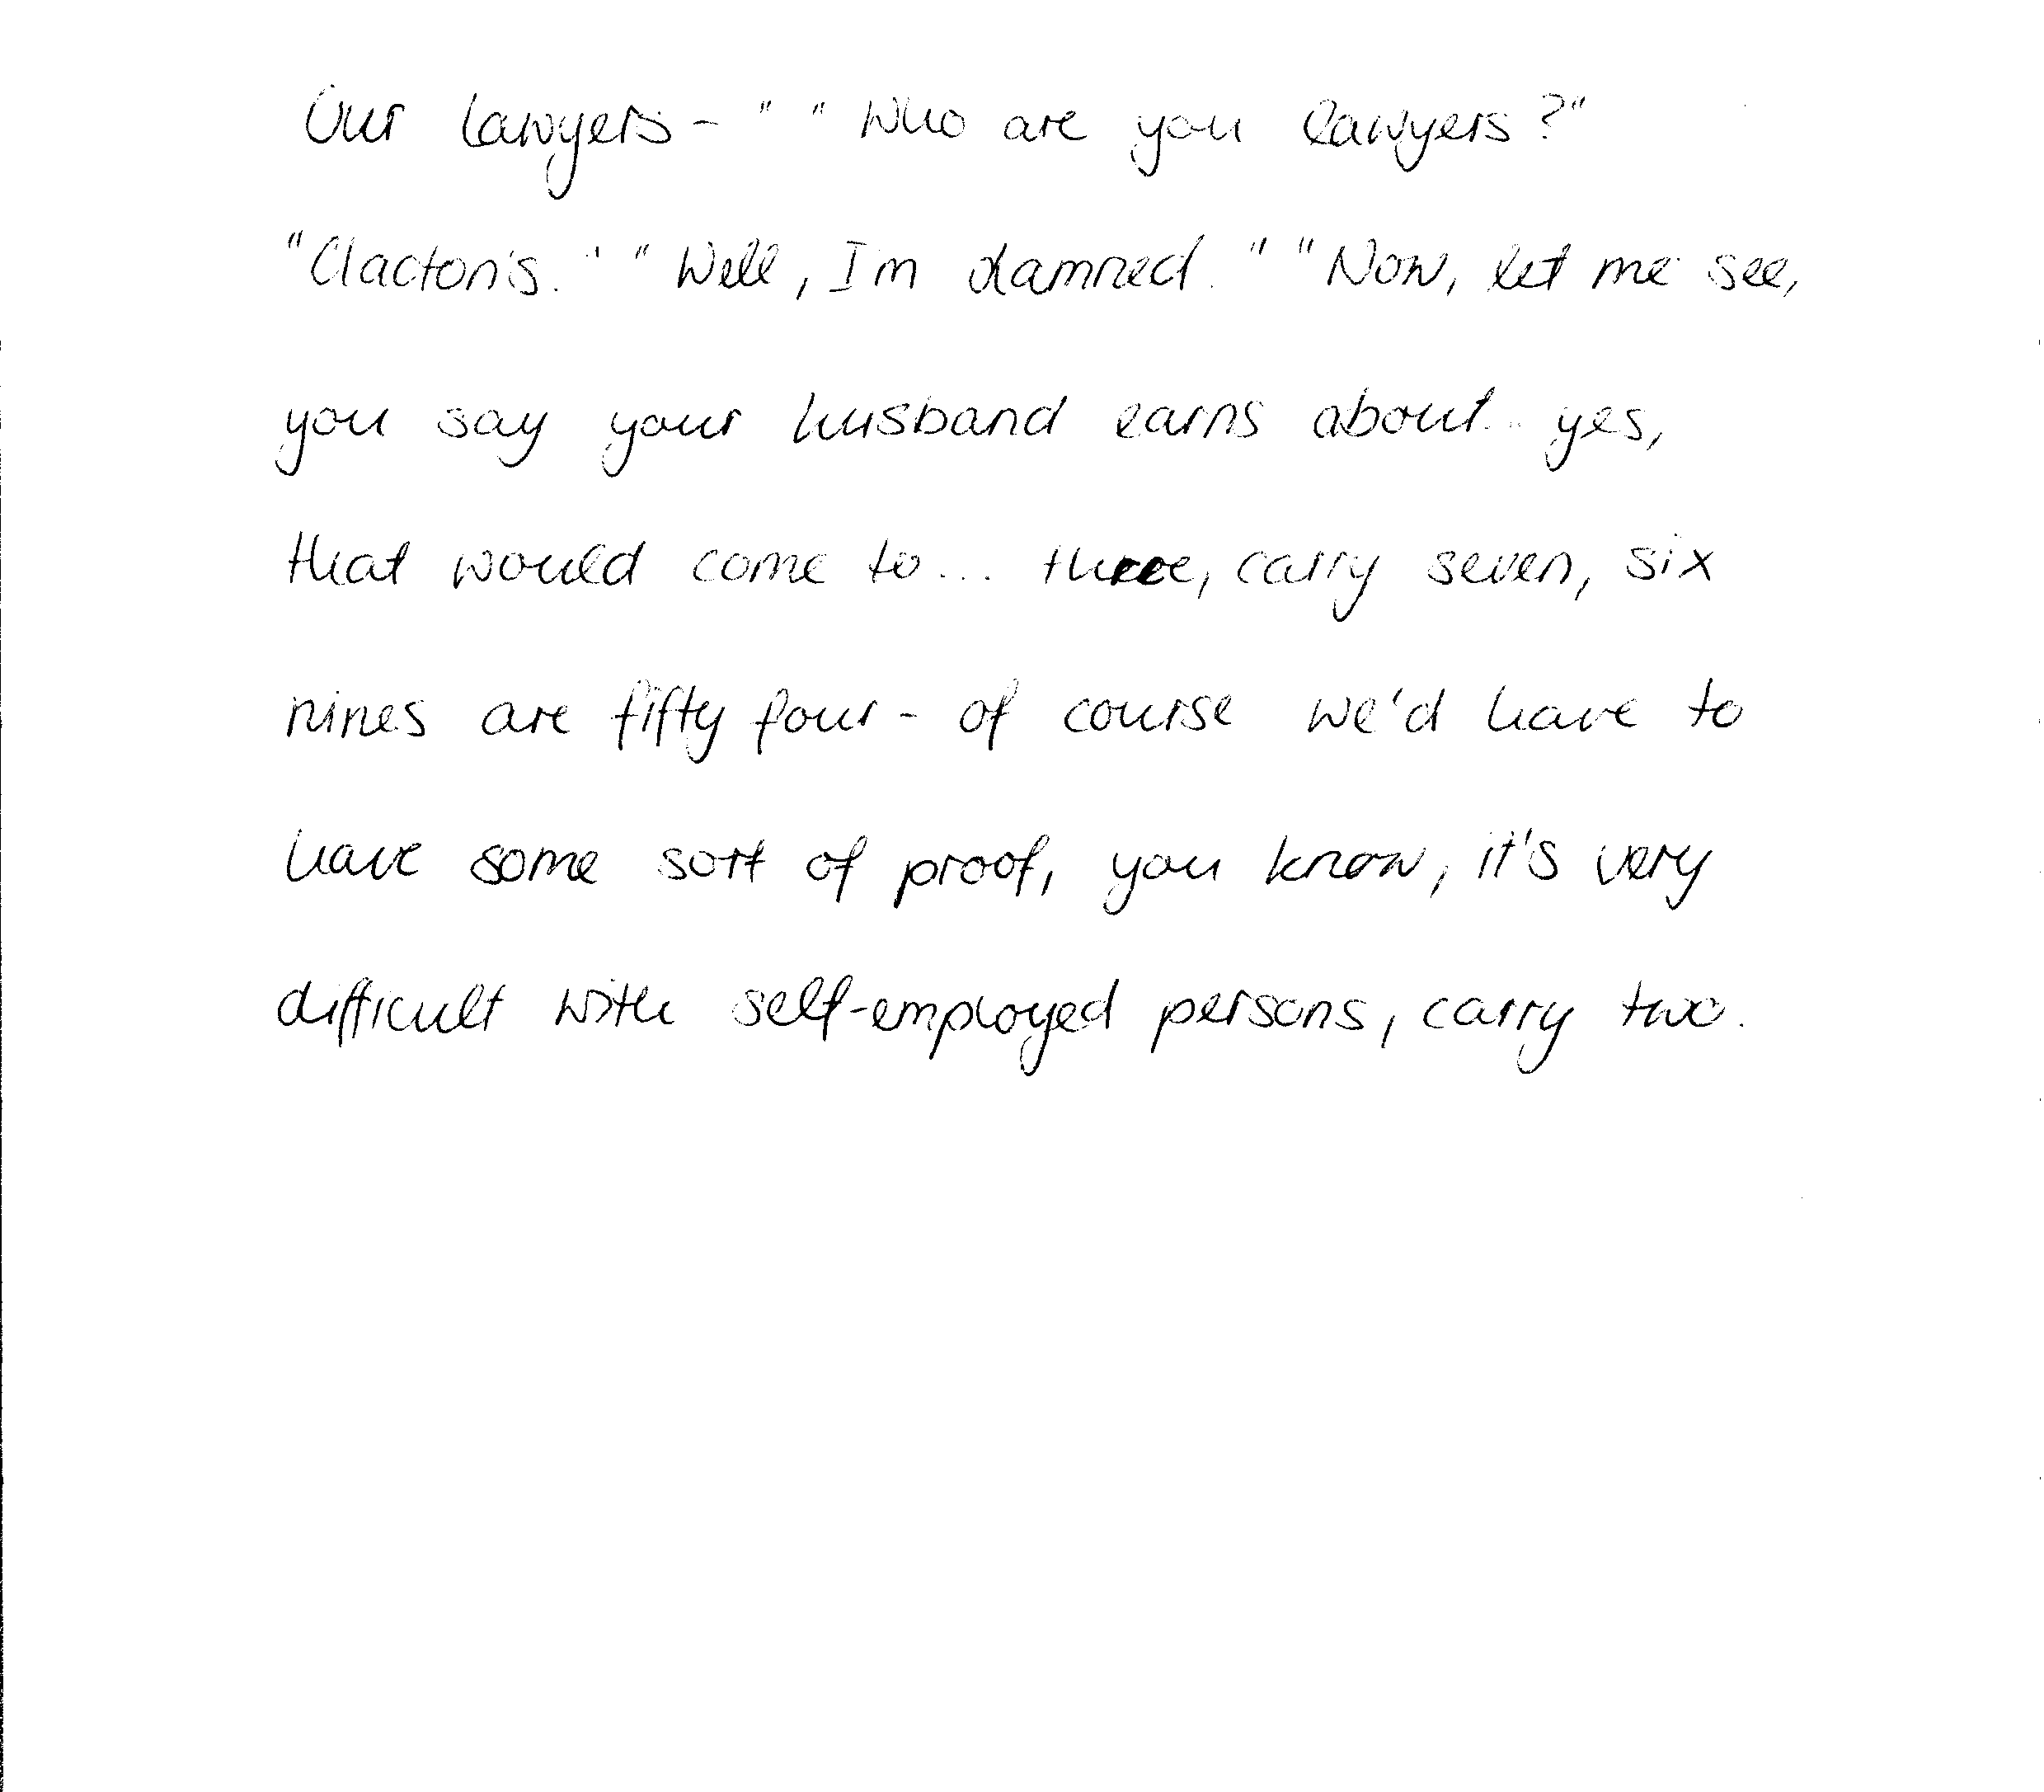 Our lawyers - " " Who are you lawyers ?"
"Clacton's. " " Well, I'm damned. " "Now, let me see,
you say your husband earns about... yes,
that would come to... three, carry seven, six
nines are fifty four - of course we'd have to
have some sort of proof, you know, it's very
difficult with self-employed persons, carry two.